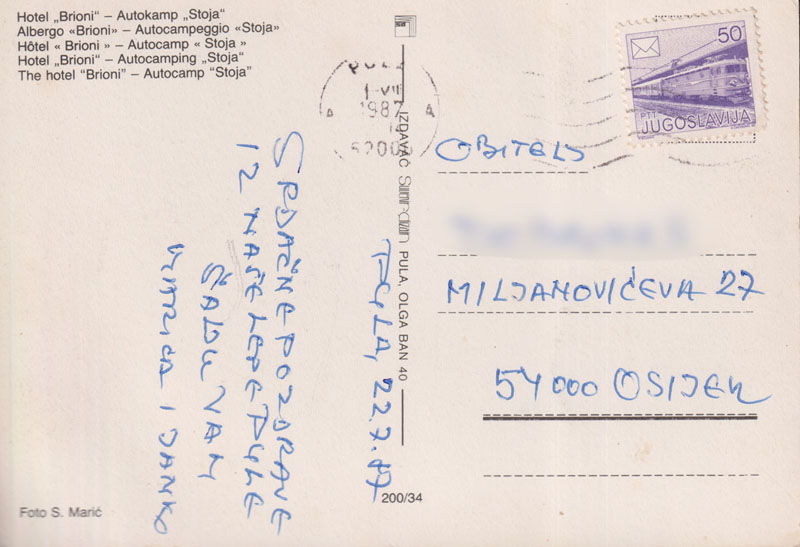 Hotel „Brioni“ – Autokamp „Stoja“
Albergo «Brioni» – Autocampeggio «Stoja»
Hôtel « Brioni » – Autocamp « Stoja »
Hotel „Brioni“ – Autocamping „Stoja“
The hotel “Brioni” – Autocamp “Stoja”
PULA
1987
A
52000
50
PTT
JUGOSLAVIJA
PULA, 22.7.87
SRDAČNE POZDRAVE
IZ NAŠE LEPE PULE
ŠALJU VAM
MARICA I JANKO
IZDAVAČ PULA, OLGA BAN 40
OBITELJ
MILJANOVIĆEVA 27
54000 OSIJEK
200/34
Foto S. Marić